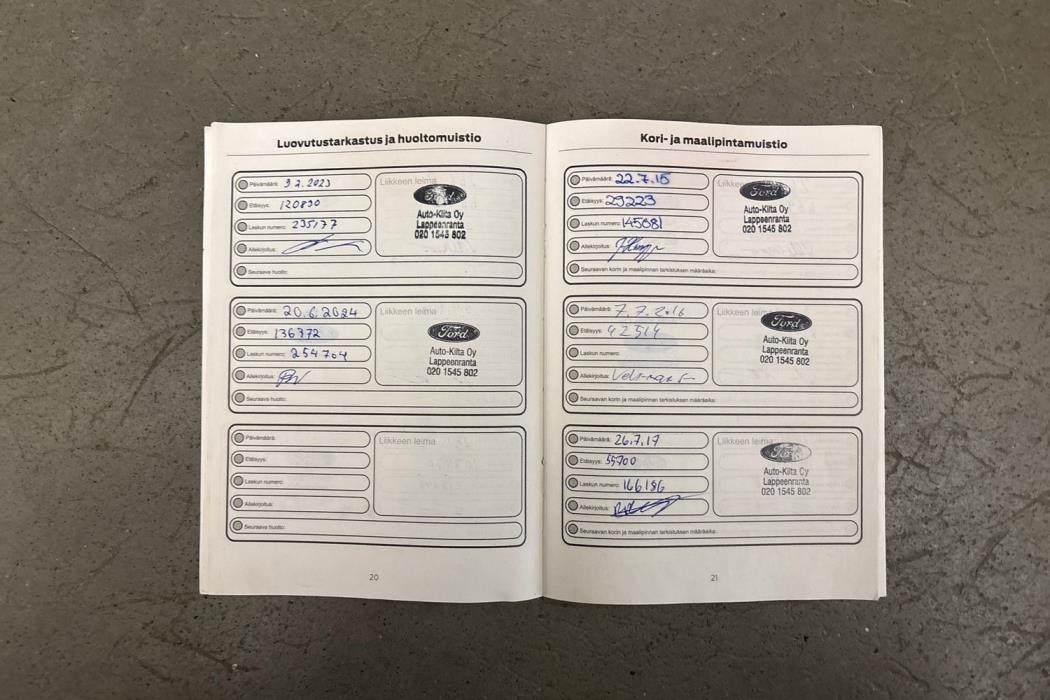 Luovutustarkastus ja huoltomuistio
Päivämäärä: 3.2.2023
Etäisyys: 120830
Laskun numero: 235177
Allekirjoitus:
Seuraava huolto:
Liikkeen leima
Ford
Auto-Kilta Oy
Lappeenranta
020 1545 802
Päivämäärä: 20.6.2024
Etäisyys: 136372
Laskun numero: 254764
Allekirjoitus:
Seuraava huolto:
Liikkeen leima
Ford
Auto-Kilta Oy
Lappeenranta
020 1545 802
Päivämäärä:
Etäisyys:
Laskun numero:
Allekirjoitus:
Seuraava huolto:
Liikkeen leima
20
Kori- ja maalipintamuistio
Päivämäärä: 22.7.15
Etäisyys: 29223
Laskun numero: 145681
Allekirjoitus:
Seuraavan korin ja maalipinnan tarkistuksen määräaika:
Liikkeen leima
Ford
Auto-Kilta Oy
Lappeenranta
020 1545 802
Päivämäärä: 7.7.2.16
Etäisyys: 42514
Laskun numero:
Allekirjoitus:
Seuraavan korin ja maalipinnan tarkistuksen määräaika:
Liikkeen leima
Ford
Auto-Kilta Oy
Lappeenranta
020 1545 802
Päivämäärä: 26.7.17
Etäisyys: 55700
Laskun numero: 166186
Allekirjoitus:
Seuraavan korin ja maalipinnan tarkistuksen määräaika:
Liikkeen leima
Ford
Auto-Kilta Oy
Lappeenranta
020 1545 802
21